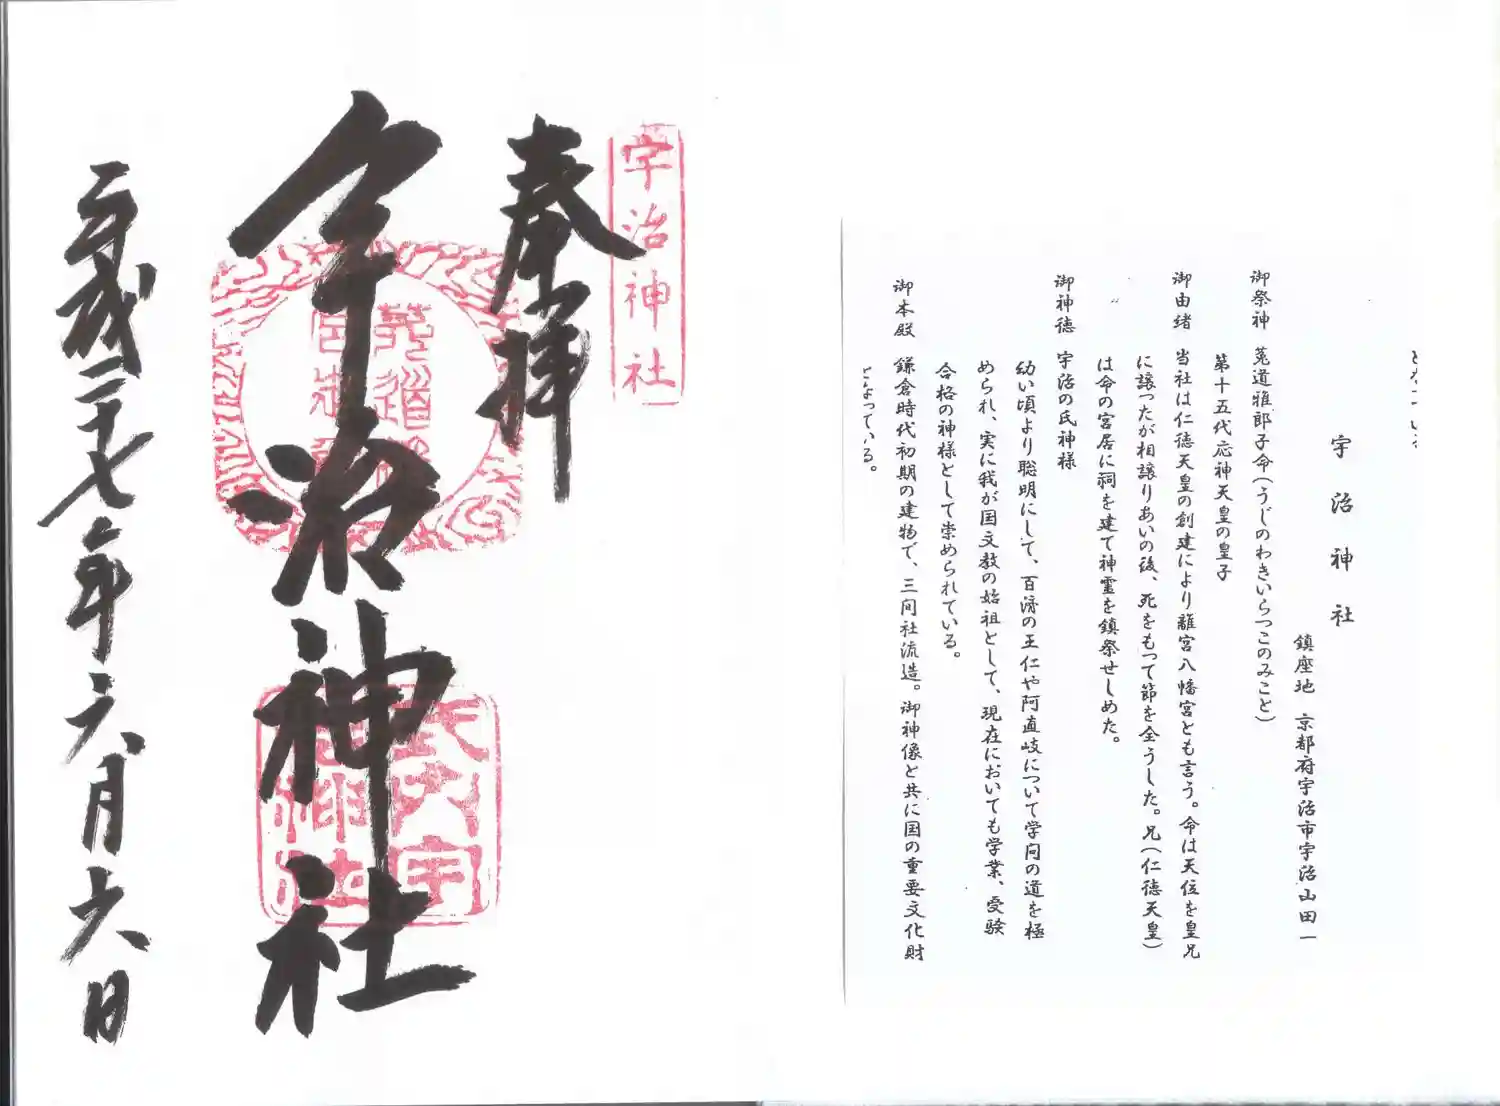 宇治神社
鎮座地　京都府宇治市宇治山田一
御祭神　菟道稚郎子命(うじのわきいらつこのみこと)
第十五代応神天皇の皇子
御由緒　当社は仁徳天皇の創建により離宮八幡宮とも言う。命は天位を皇兄
に譲ったが相譲りあいの後、死をもって節を全うした。兄(仁徳天皇)
は命の宮居に祠を建て神霊を鎮祭せしめた。
御神徳　宇治の氏神様
幼い頃より聡明にして、百済の王仁や阿直岐について学問の道を極
められ、実に我が国文教の始祖として、現在においても学業、受験
合格の神様として崇められている。
御本殿　鎌倉時代初期の建物で、三間社流造。御神像と共に国の重要文化財
となっている。
宇治神社
奉拝
宇治神社
平成二十七年六月六日